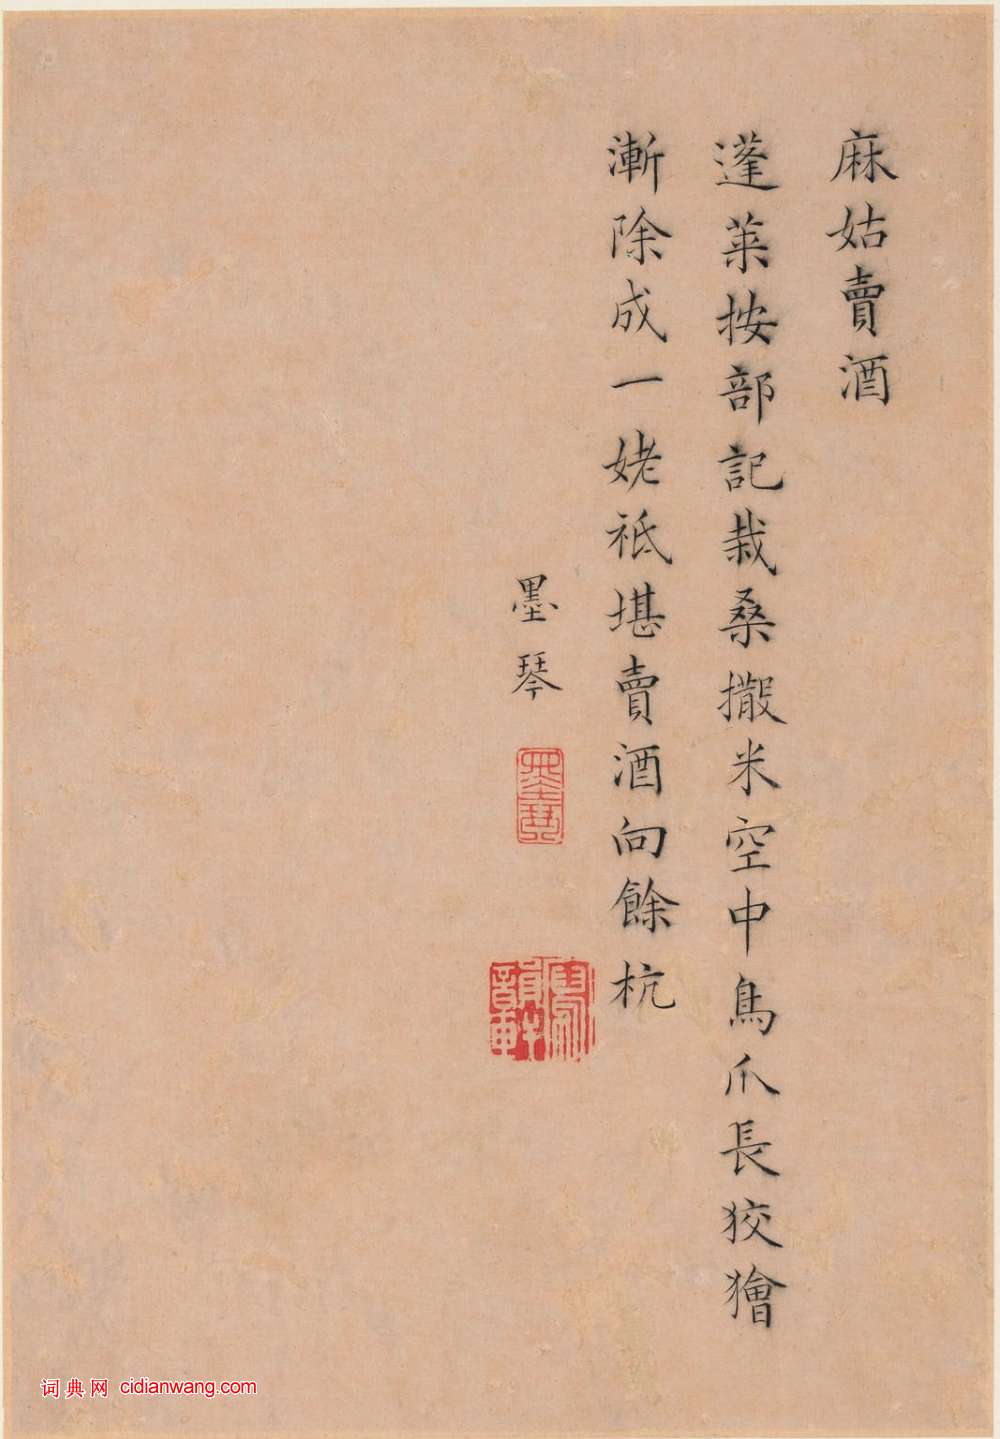 麻姑賣酒
蓬萊按部記栽桑撒米空中鳥爪長狡獪
漸除成一姥祇堪賣酒向餘杭
墨琴
墨琴
词典网 cidianwang.com